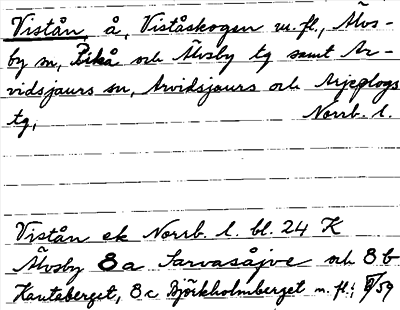 Vistån, å, Viståskogen m.fl., Älvs-
by sn, Piteå och Älvsby tg samt Ar-
vidsjaurs sn, Arvidsjaurs och Arjeplogs
tg, Norrb. l.
Vistån ek Norrb. l. bl. 24 K
Älvsby 8a Sarvasåjve och 8b
Kantaberget, 8c Björkholmberget m. fl.; /59